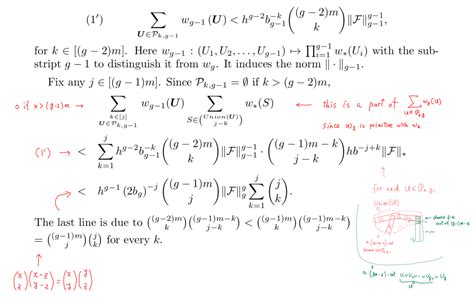 (1′) ∑_{U∈P_{k,g−1}} w_{g−1}(U) < h^{g−2} b_{g−1}^{−k} \binom{(g−2)m}{k} ‖F‖_{g−1}^{g−1},
for k ∈ [(g − 2)m]. Here w_{g−1} : (U_1, U_2, . . . , U_{g−1}) ↦ ∏_{i=1}^{g−1} w_*(U_i) with the sub-
script g − 1 to distinguish it from w_g. It induces the norm ‖ · ‖_{g−1}.
Fix any j ∈ [(g − 1)m]. Since P_{k,g−1} = ∅ if k > (g − 2)m,
0 if k > (g-2)m → ∑_{k∈[j], U∈P_{k,g−1}} w_{g−1}(U) ∑_{S∈\binom{Union(U)}{j−k}} w_*(S) ← this is a part of ∑_{U∈P_{j,g}} w_g(U)
since w_g is primitive with w_*
(1′) → < ∑_{k=1}^{j} h^{g−2} b_{g−1}^{−k} \binom{(g−2)m}{k} ‖F‖_{g−1}^{g−1} · \binom{(g−1)m−k}{j−k} h b^{−j+k} ‖F‖_*
< h^{g−1} (2b_g)^{−j} \binom{(g−1)m}{j} ‖F‖_g^g ∑_{k=1}^{j} \binom{j}{k}.
for each U ∈ P_{k,g-1}
The last line is due to \binom{(g−2)m}{k}\binom{(g−1)m−k}{j−k} < \binom{(g−1)m}{k}\binom{(g−1)m−k}{j−k}
= \binom{(g−1)m}{j}\binom{j}{k} for every k.
\binom{x}{z}\binom{x-z}{y-z} = \binom{x}{y}\binom{y}{z}